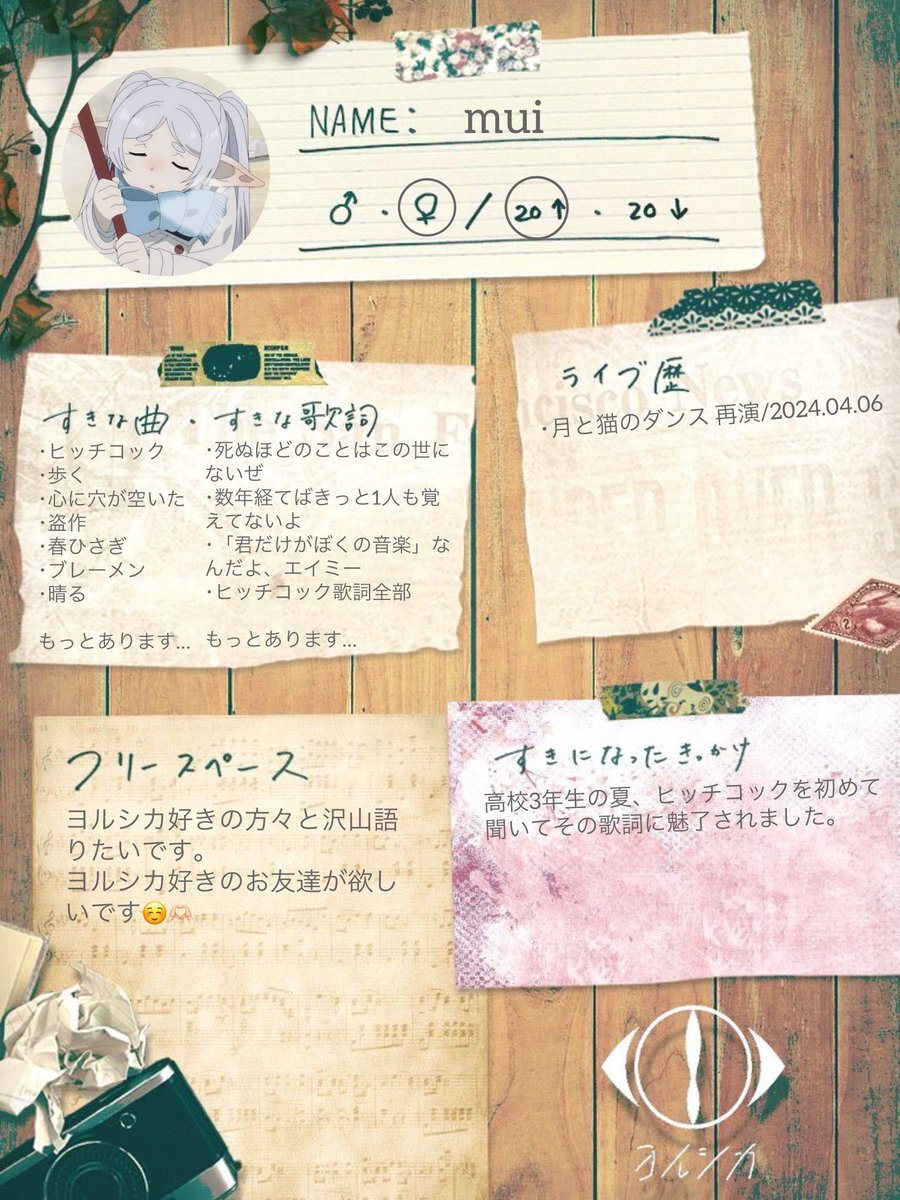 NAME: mui
♂・♀/20↑・20↓
すきな曲・すきな歌詞
・ヒッチコック
・歩く
・心に穴が空いた
・盗作
・春ひさぎ
・ブレーメン
・晴る
もっとあります...
・死ぬほどのことはこの世に
ないぜ
・数年経てばきっと1人も覚
えてないよ
・「君だけがぼくの音楽」な
んだよ、エイミー
・ヒッチコック歌詞全部
もっとあります...
ライブ歴
・月と猫のダンス 再演/2024.04.06
フリースペース
ヨルシカ好きの方々と沢山語
りたいです。
ヨルシカ好きのお友達が欲し
いです☺️🫶
すきになったきっかけ
高校3年生の夏、ヒッチコックを初めて
聞いてその歌詞に魅了されました。
ヨルシカ